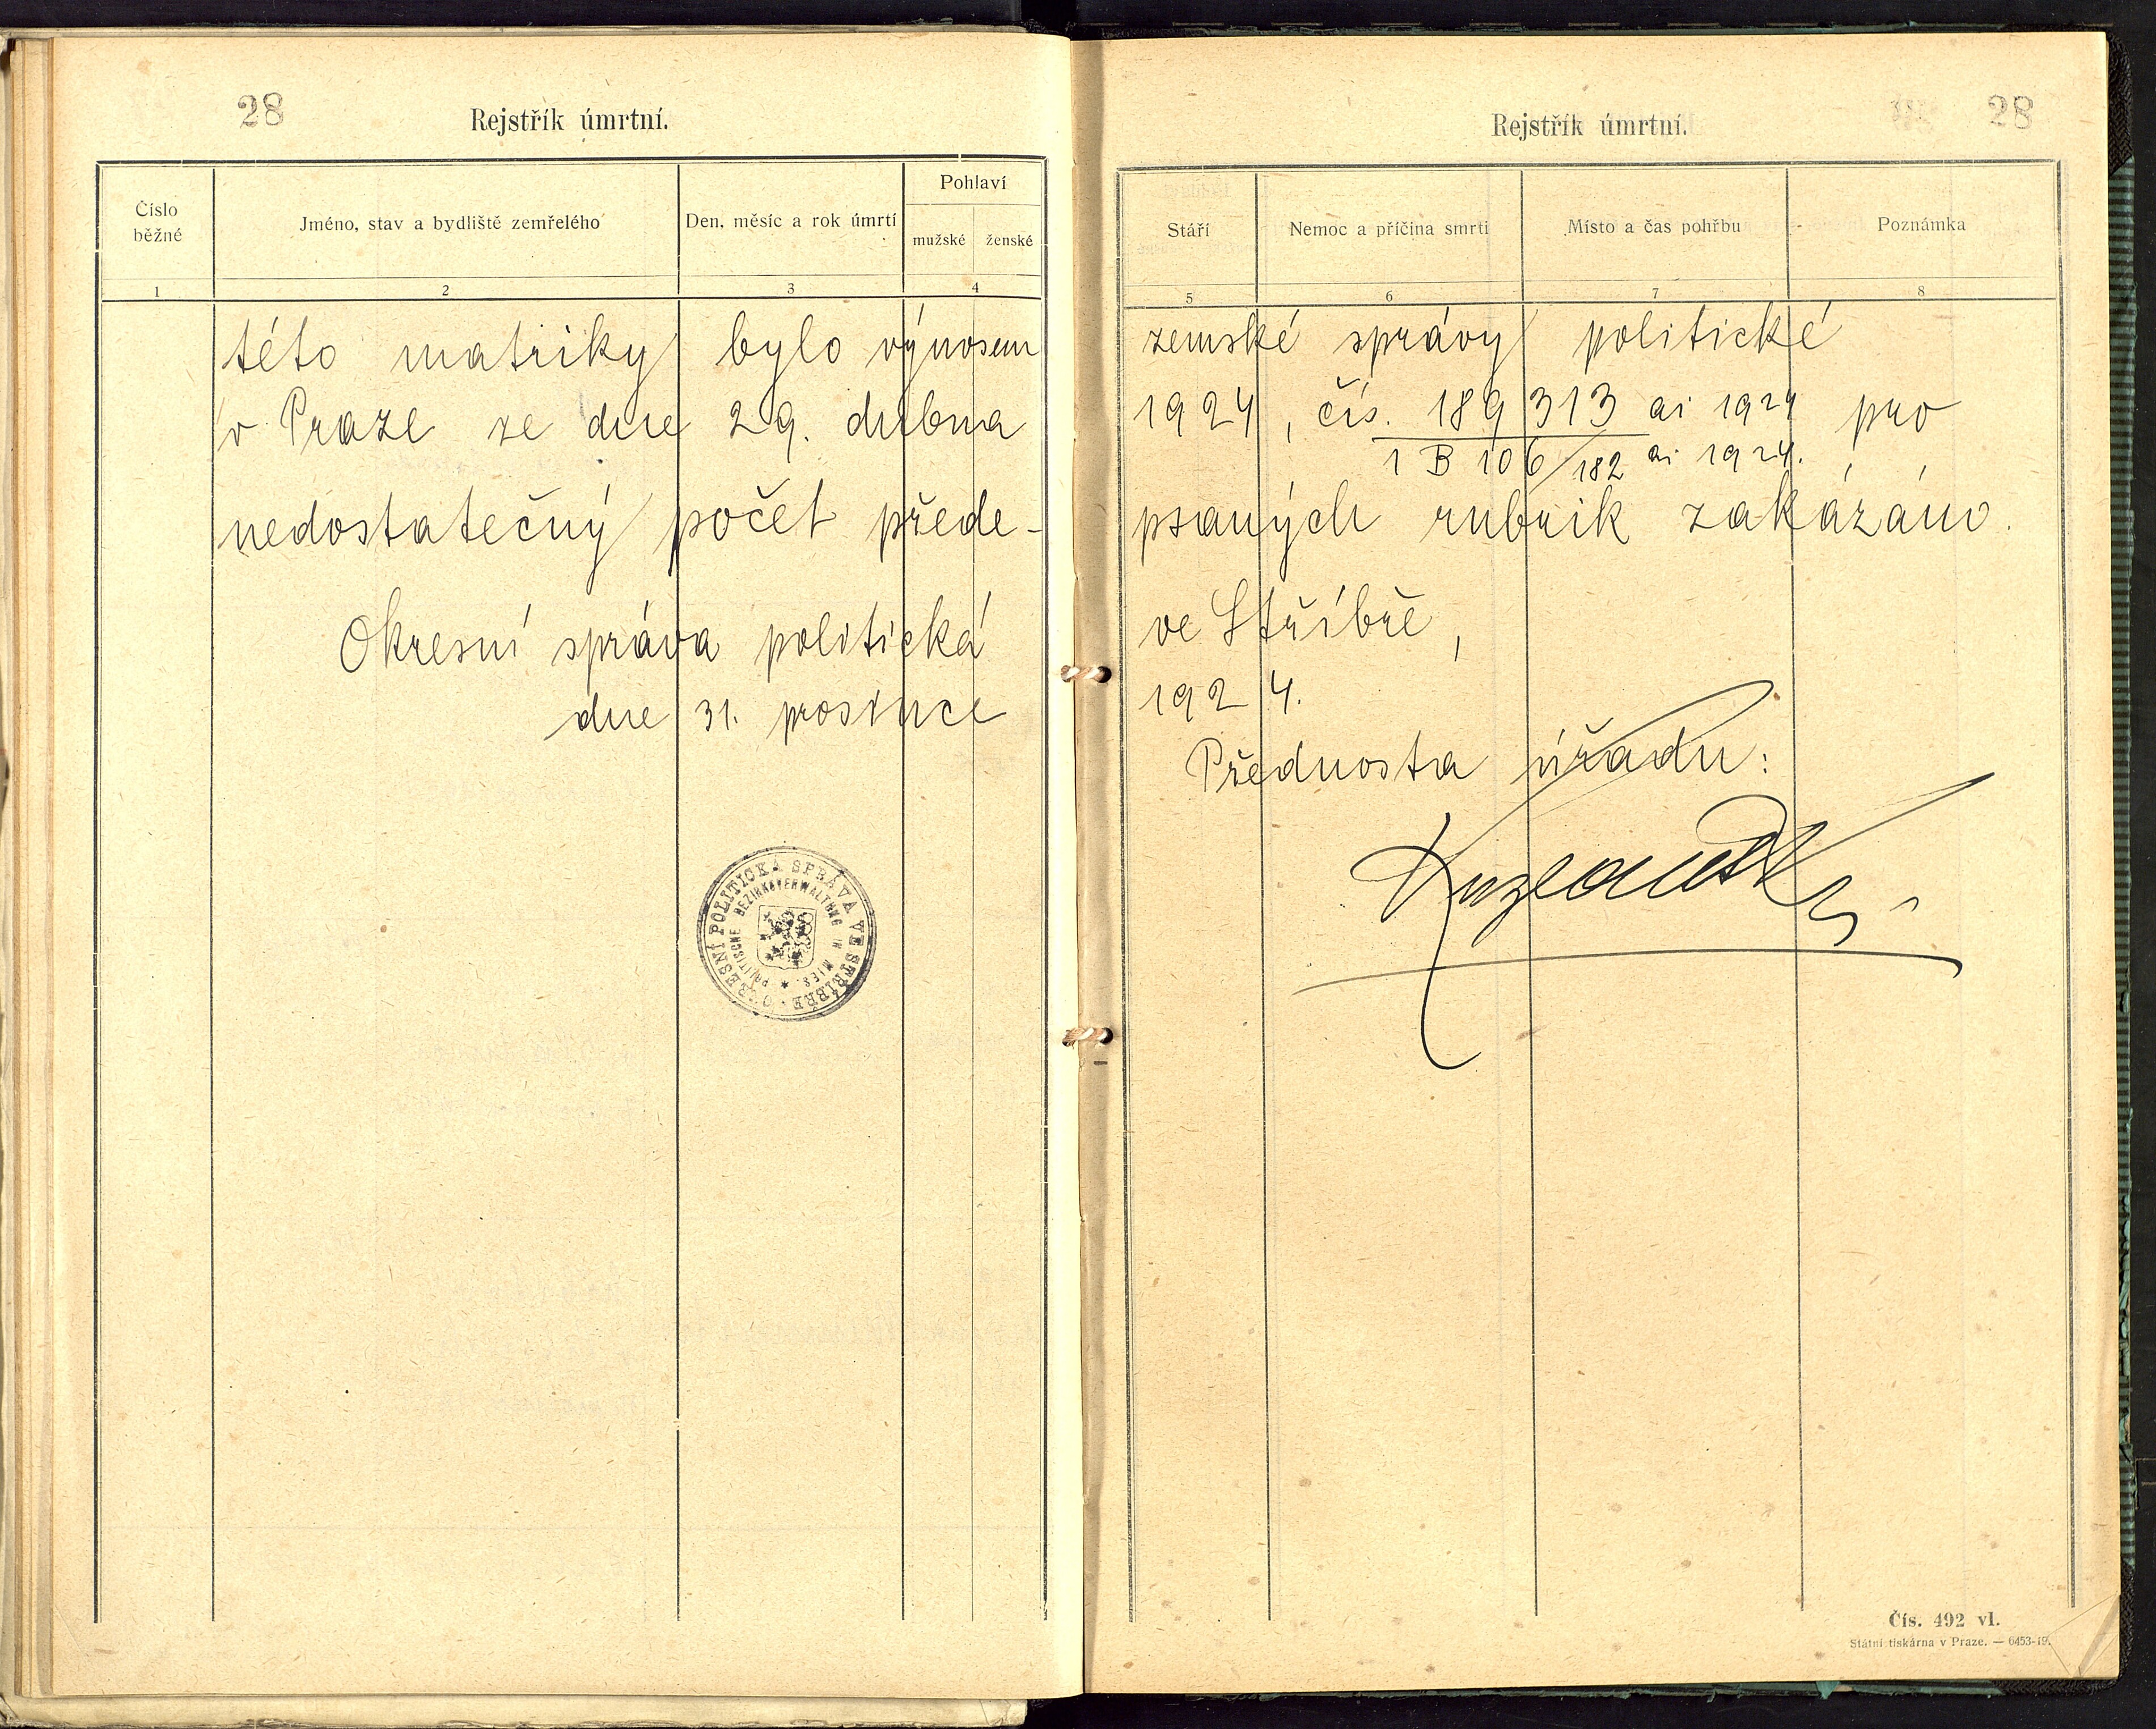 28
Rejstřík úmrtní.
Číslo běžné
Jméno, stav a bydliště zemřelého
Den, měsíc a rok úmrtí
Pohlaví
mužské
ženské
1
2
3
4
této matriky bylo výnosem
v Praze ze dne 29. dubna
nedostatečný počet přede-
Okresní správa politická
dne 31. prosince
OKRESNÍ POLITICKÁ SPRÁVA VE STŘÍBŘE
POLITISCHE BEZIRKSVERWALTUNG IN MIES. *
28
Rejstřík úmrtní.
Stáří
Nemoc a příčina smrti
Místo a čas pohřbu
Poznámka
5
6
7
8
zemské správy politické
1924, čís. 189313 ai 1924 pro
1 B 106/182 ai 1924.
psaných rubrik zakázáno.
ve Stříbře,
1924.
Přednosta úřadu:
Čís. 492 vl.
Státní tiskárna v Praze. — 6453-19.